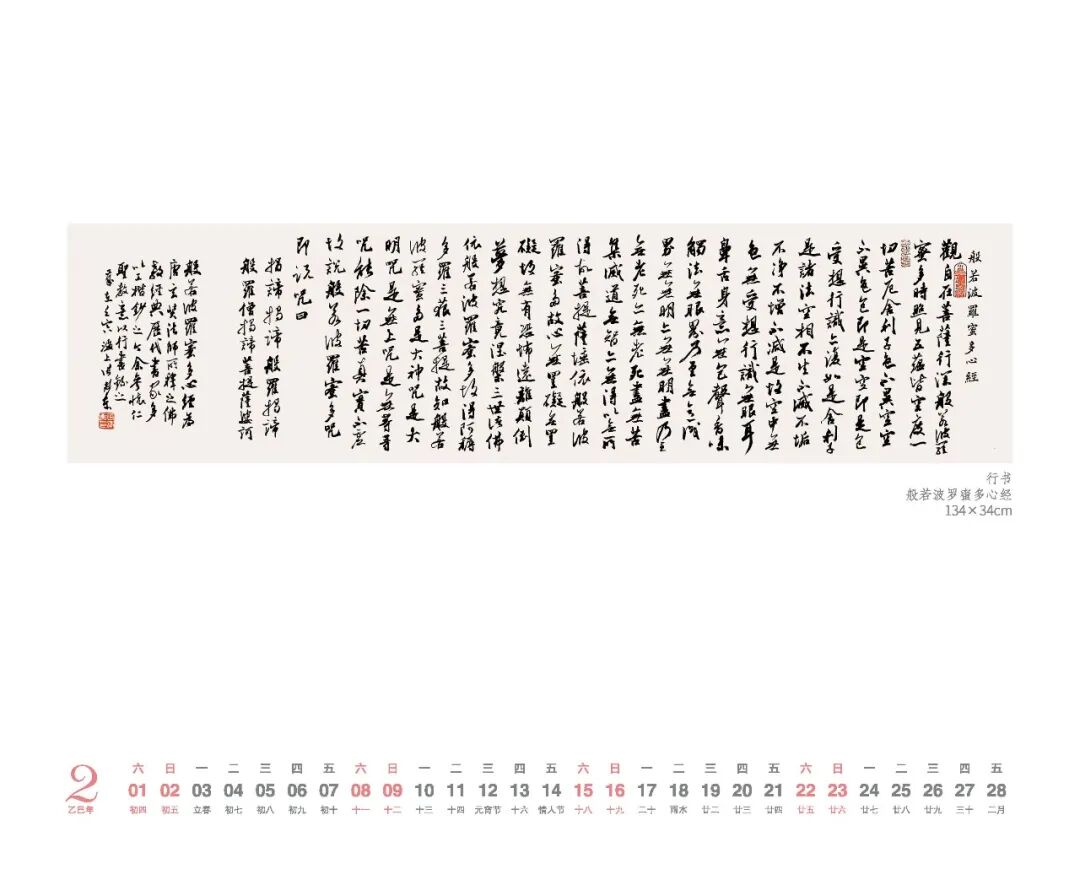 般若波羅蜜多心經
觀自在菩薩行深般若波羅
蜜多時照見五蘊皆空度一
切苦厄舍利子色不異空空
不異色色即是空空即是色
受想行識亦復如是舍利子
是諸法空相不生不滅不垢
不淨不增不減是故空中無
色無受想行識無眼耳
鼻舌身意無色聲香味
觸法無眼界乃至無意識
界無無明亦無無明盡乃至
無老死亦無老死盡無苦
集滅道無智亦無得以無所
得故菩提薩埵依般若波
羅蜜多故心無罣礙無罣
礙故無有恐怖遠離顛倒
夢想究竟涅槃三世諸佛
依般若波羅蜜多故得阿耨
多羅三藐三菩提故知般若
波羅蜜多是大神咒是大
明咒是無上咒是無等等
咒能除一切苦真實不虛
故說般若波羅蜜多咒
即說咒曰
揭諦揭諦般羅揭諦
般羅僧揭諦菩提薩婆訶
般若波羅蜜多心經為
唐玄奘法師所譯之佛
教經典歷代書家多
以小楷鈔之今余參懷仁
聖教意以行書錄之
行书
般若波罗蜜多心经
134×34cm
2 六 日 一 二 三 四 五 六 日 一 二 三 四 五 六 日 一 二 三 四 五 六 日 一 二 三 四 五
01 02 03 04 05 06 07 08 09 10 11 12 13 14 15 16 17 18 19 20 21 22 23 24 25 26 27 28
乙巳年 初四 初五 立春 初七 初八 初九 初十 十一 十二 十三 十四 元宵节 十六 情人节 十八 十九 二十 雨水 廿二 廿三 廿四 廿五 廿六 廿七 廿八 廿九 三十 二月